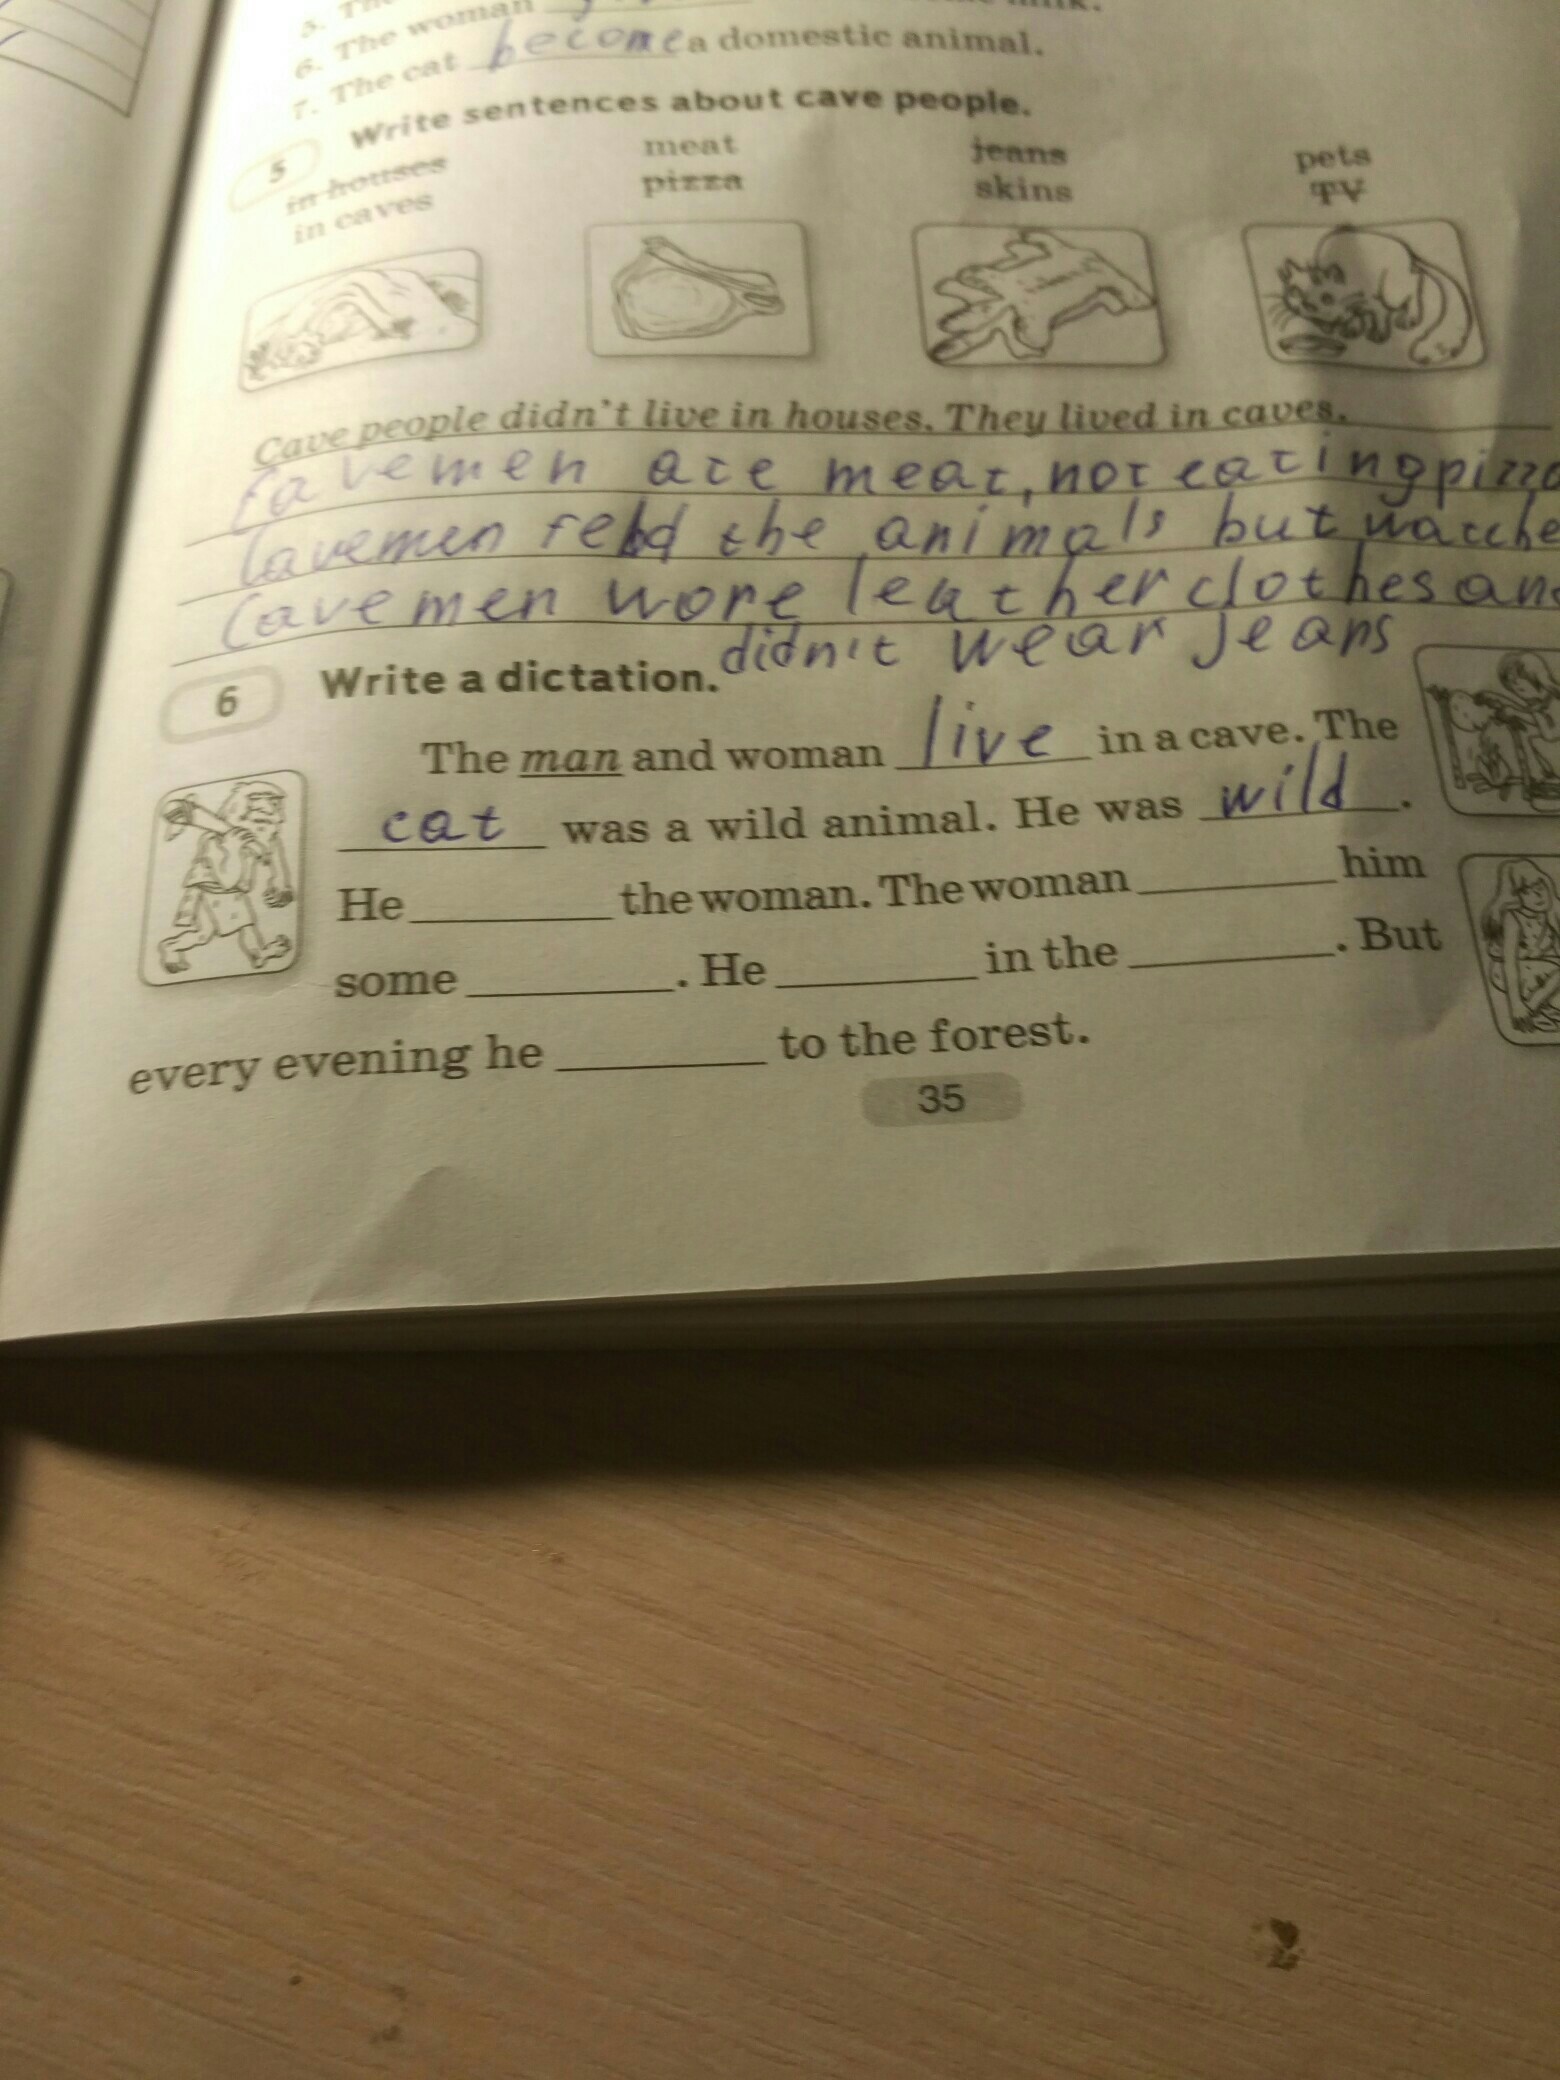 5. The
6. The woman milk.
7. The cat become a domestic animal.
5 Write sentences about cave people.
in houses meat jeans pets
in caves pizza skins TV
Cave people didn't live in houses. They lived in caves.
Cavemen ate meat, not eating pizza
Cavemen the animals but watche
Cavemen wore leather clothes and
didn't wear jeans
6 Write a dictation.
The man and woman live in a cave. The
cat was a wild animal. He was wild.
He the woman. The woman him
some . He in the . But
every evening he to the forest.
35